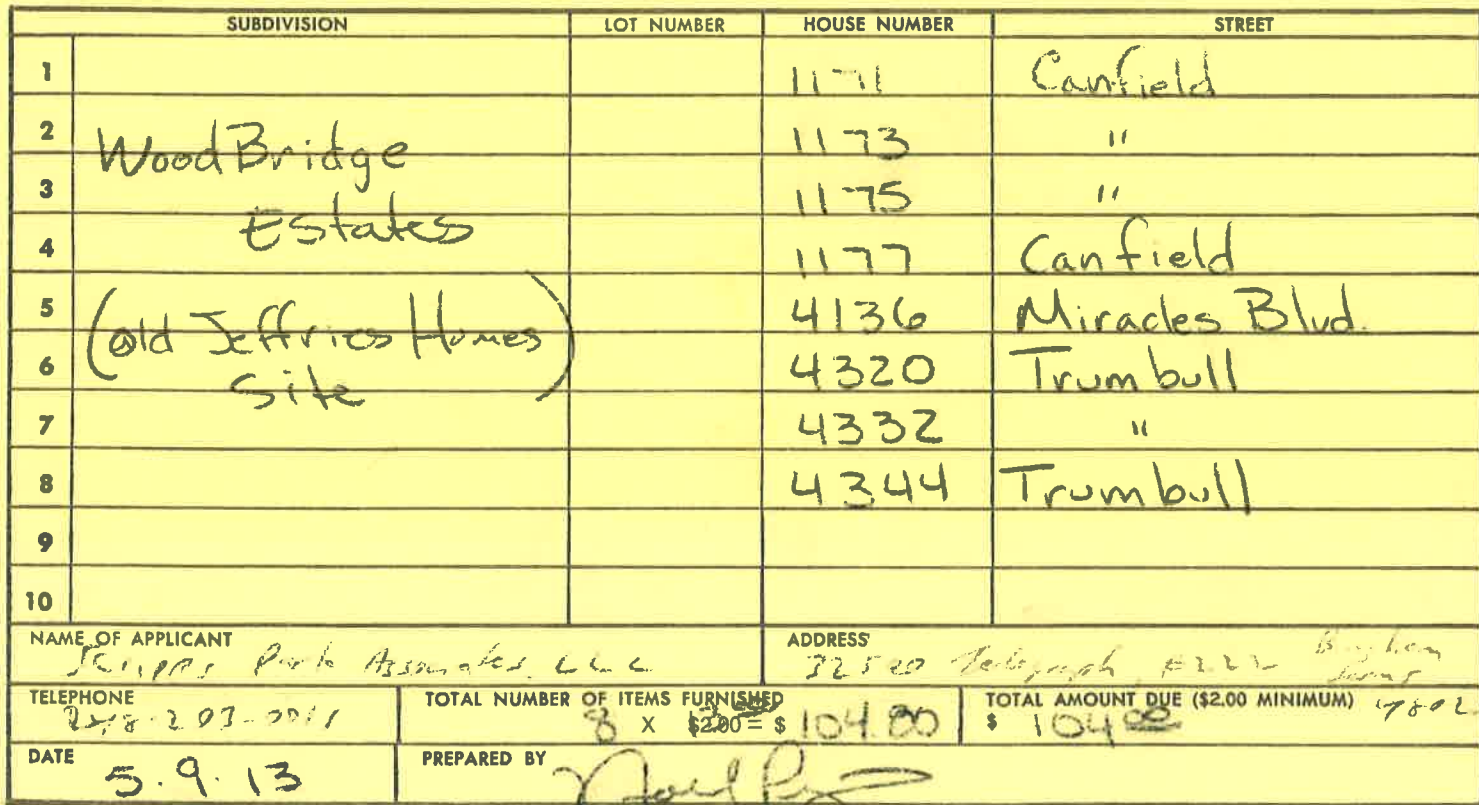 SUBDIVISION LOT NUMBER HOUSE NUMBER STREET
1 1171 Canfield
2 WoodBridge 1173 "
3 Estates 1175 "
4 1177 Canfield
5 (old Jeffries Homes 4136 Miracles Blvd.
6 Site) 4320 Trumbull
7 4332 "
8 4344 Trumbull
9
10
NAME OF APPLICANT ADDRESS
Scripps Park Associates, LLC 32520 Telegraph, Bingham Farms
TELEPHONE TOTAL NUMBER OF ITEMS FURNISHED TOTAL AMOUNT DUE ($2.00 MINIMUM)
8 X $2.00 = $ 104.00 $ 104.00
DATE PREPARED BY
5.9.13